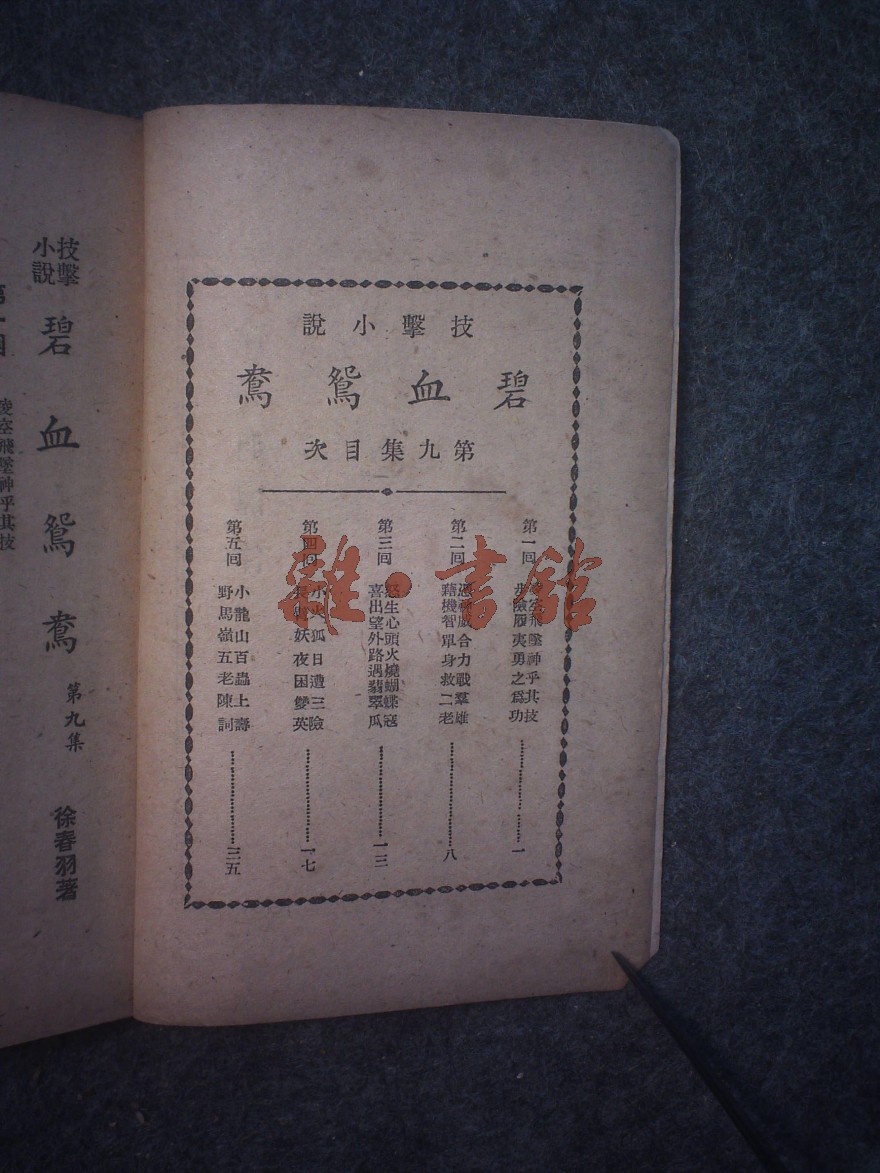 技擊小說
碧血鴛鴦
第九集目次
第一回
凌空飛墜神乎其技
險履夷勇之爲功
一
第二回
神威合力戰羣雄
藉機智單身救二老
八
第三回
怒生心頭火燒蝴蝶寇
喜出望外路遇翡翠瓜
一三
第四回
小火狐日遭三險
妖夜困雙英
一七
第五回
小龍山百蟲上壽
野馬嶺五老陳詞
三五
技擊
小說
碧血鴛鴦
第九集
徐春羽著
凌空飛墜神乎其技
雜·書館